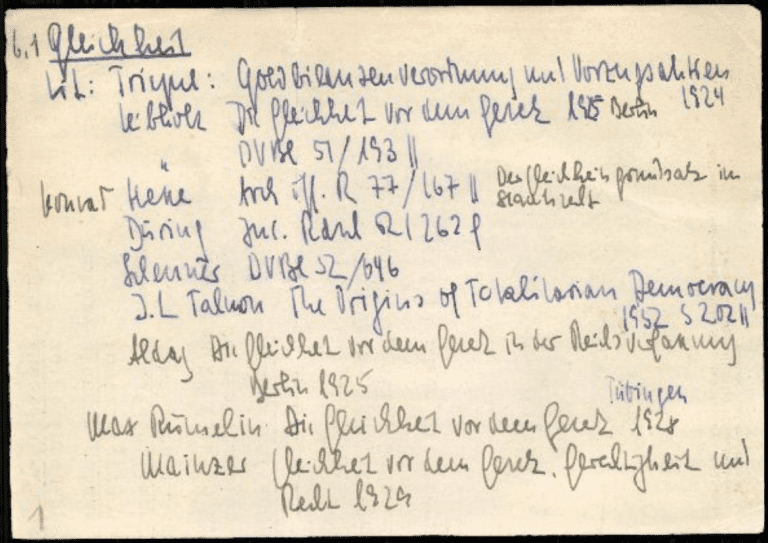 6,1 Gleichheit
Lit: Triepel: Goldbilanzenverordnung und Vorzugsaktien
1924
Leibholz Die Gleichheit vor dem Gesetz 1925 Berlin
DVBl 51/193 ||
Konrad Hesse Arch öff. R 77/167 || Der Gleichheitsgrundsatz im
Staatsrecht
Düring Jur. 52/262 f
Scheuner DVBl 52/646
J.L Talmon The Origins of Totalitarian Democracy
1952 S 202 ||
Aldag Die Gleichheit vor dem Gesetz in der Reichsverfassung
Berlin 1925
Tübingen
Max Rümelin Die Gleichheit vor dem Gesetz 1928
Mainzer Gleichheit vor dem Gesetz, Gerechtigkeit und
Recht 1929
1